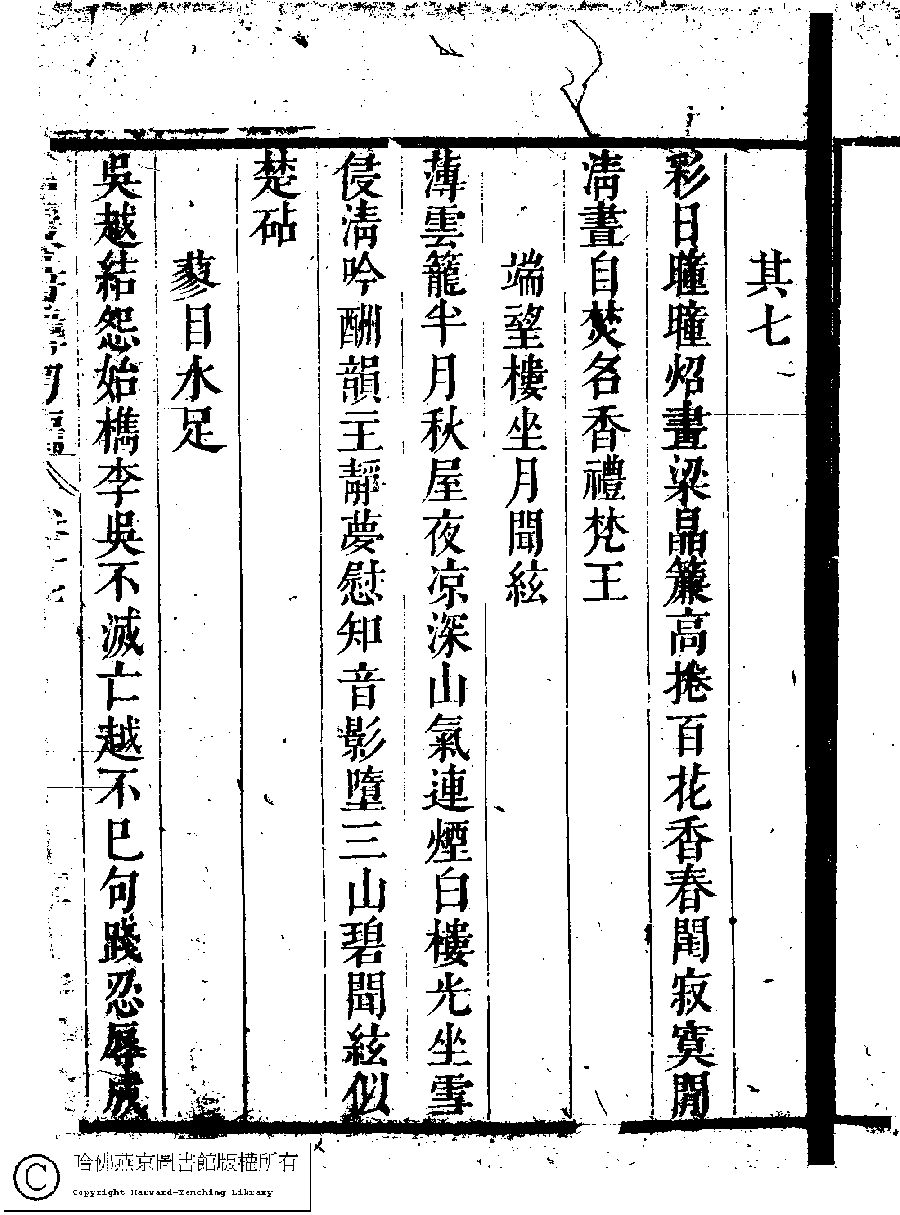 其七
彩日曈曈炤畫梁晶簾高捲百花香春閨寂寞閒
清晝自焚名香禮梵王
端望樓坐月聞絃
薄雲籠半月秋屋夜凉深山氣連煙白樓光坐雪
侵清吟酬韻主靜夢慰知音影墮三山碧聞絃似
楚砧
蓼目水足
吳越結怨始檇李吳不滅亡越不已句踐忍辱
哈佛燕京圖書館版權所有
Copyright Harvard-Yenching Library